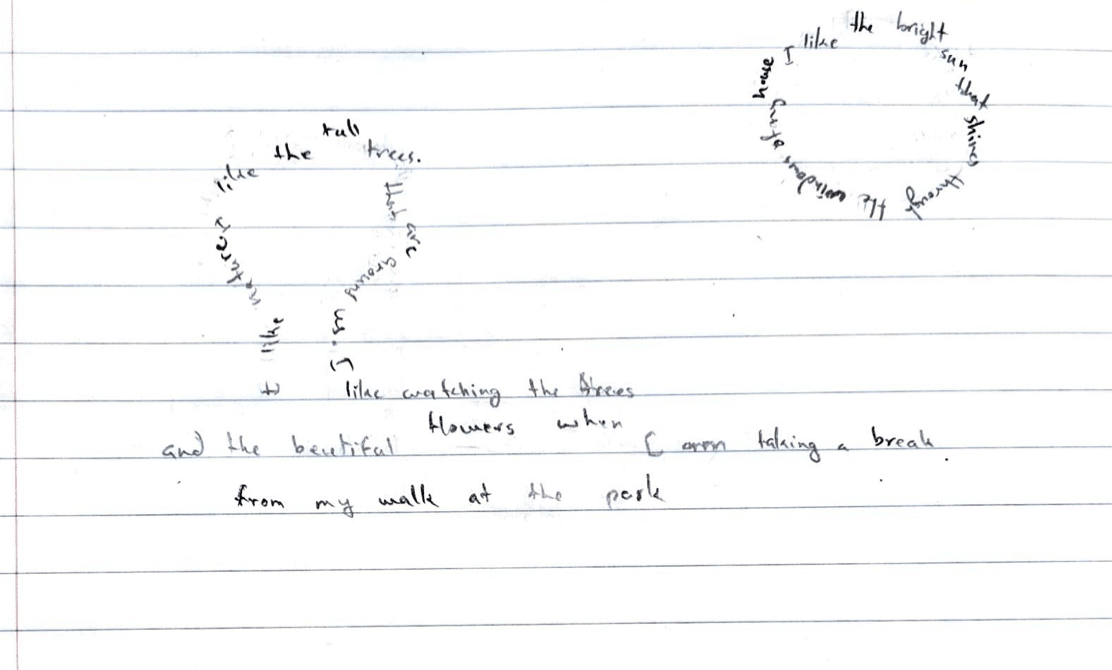 I like the bright sun that shines through the windows of my house
I like nature I like the tall trees. that are growing in.
I like watching the trees
and the beutiful flowers when I am taking a break
from my walk at the park